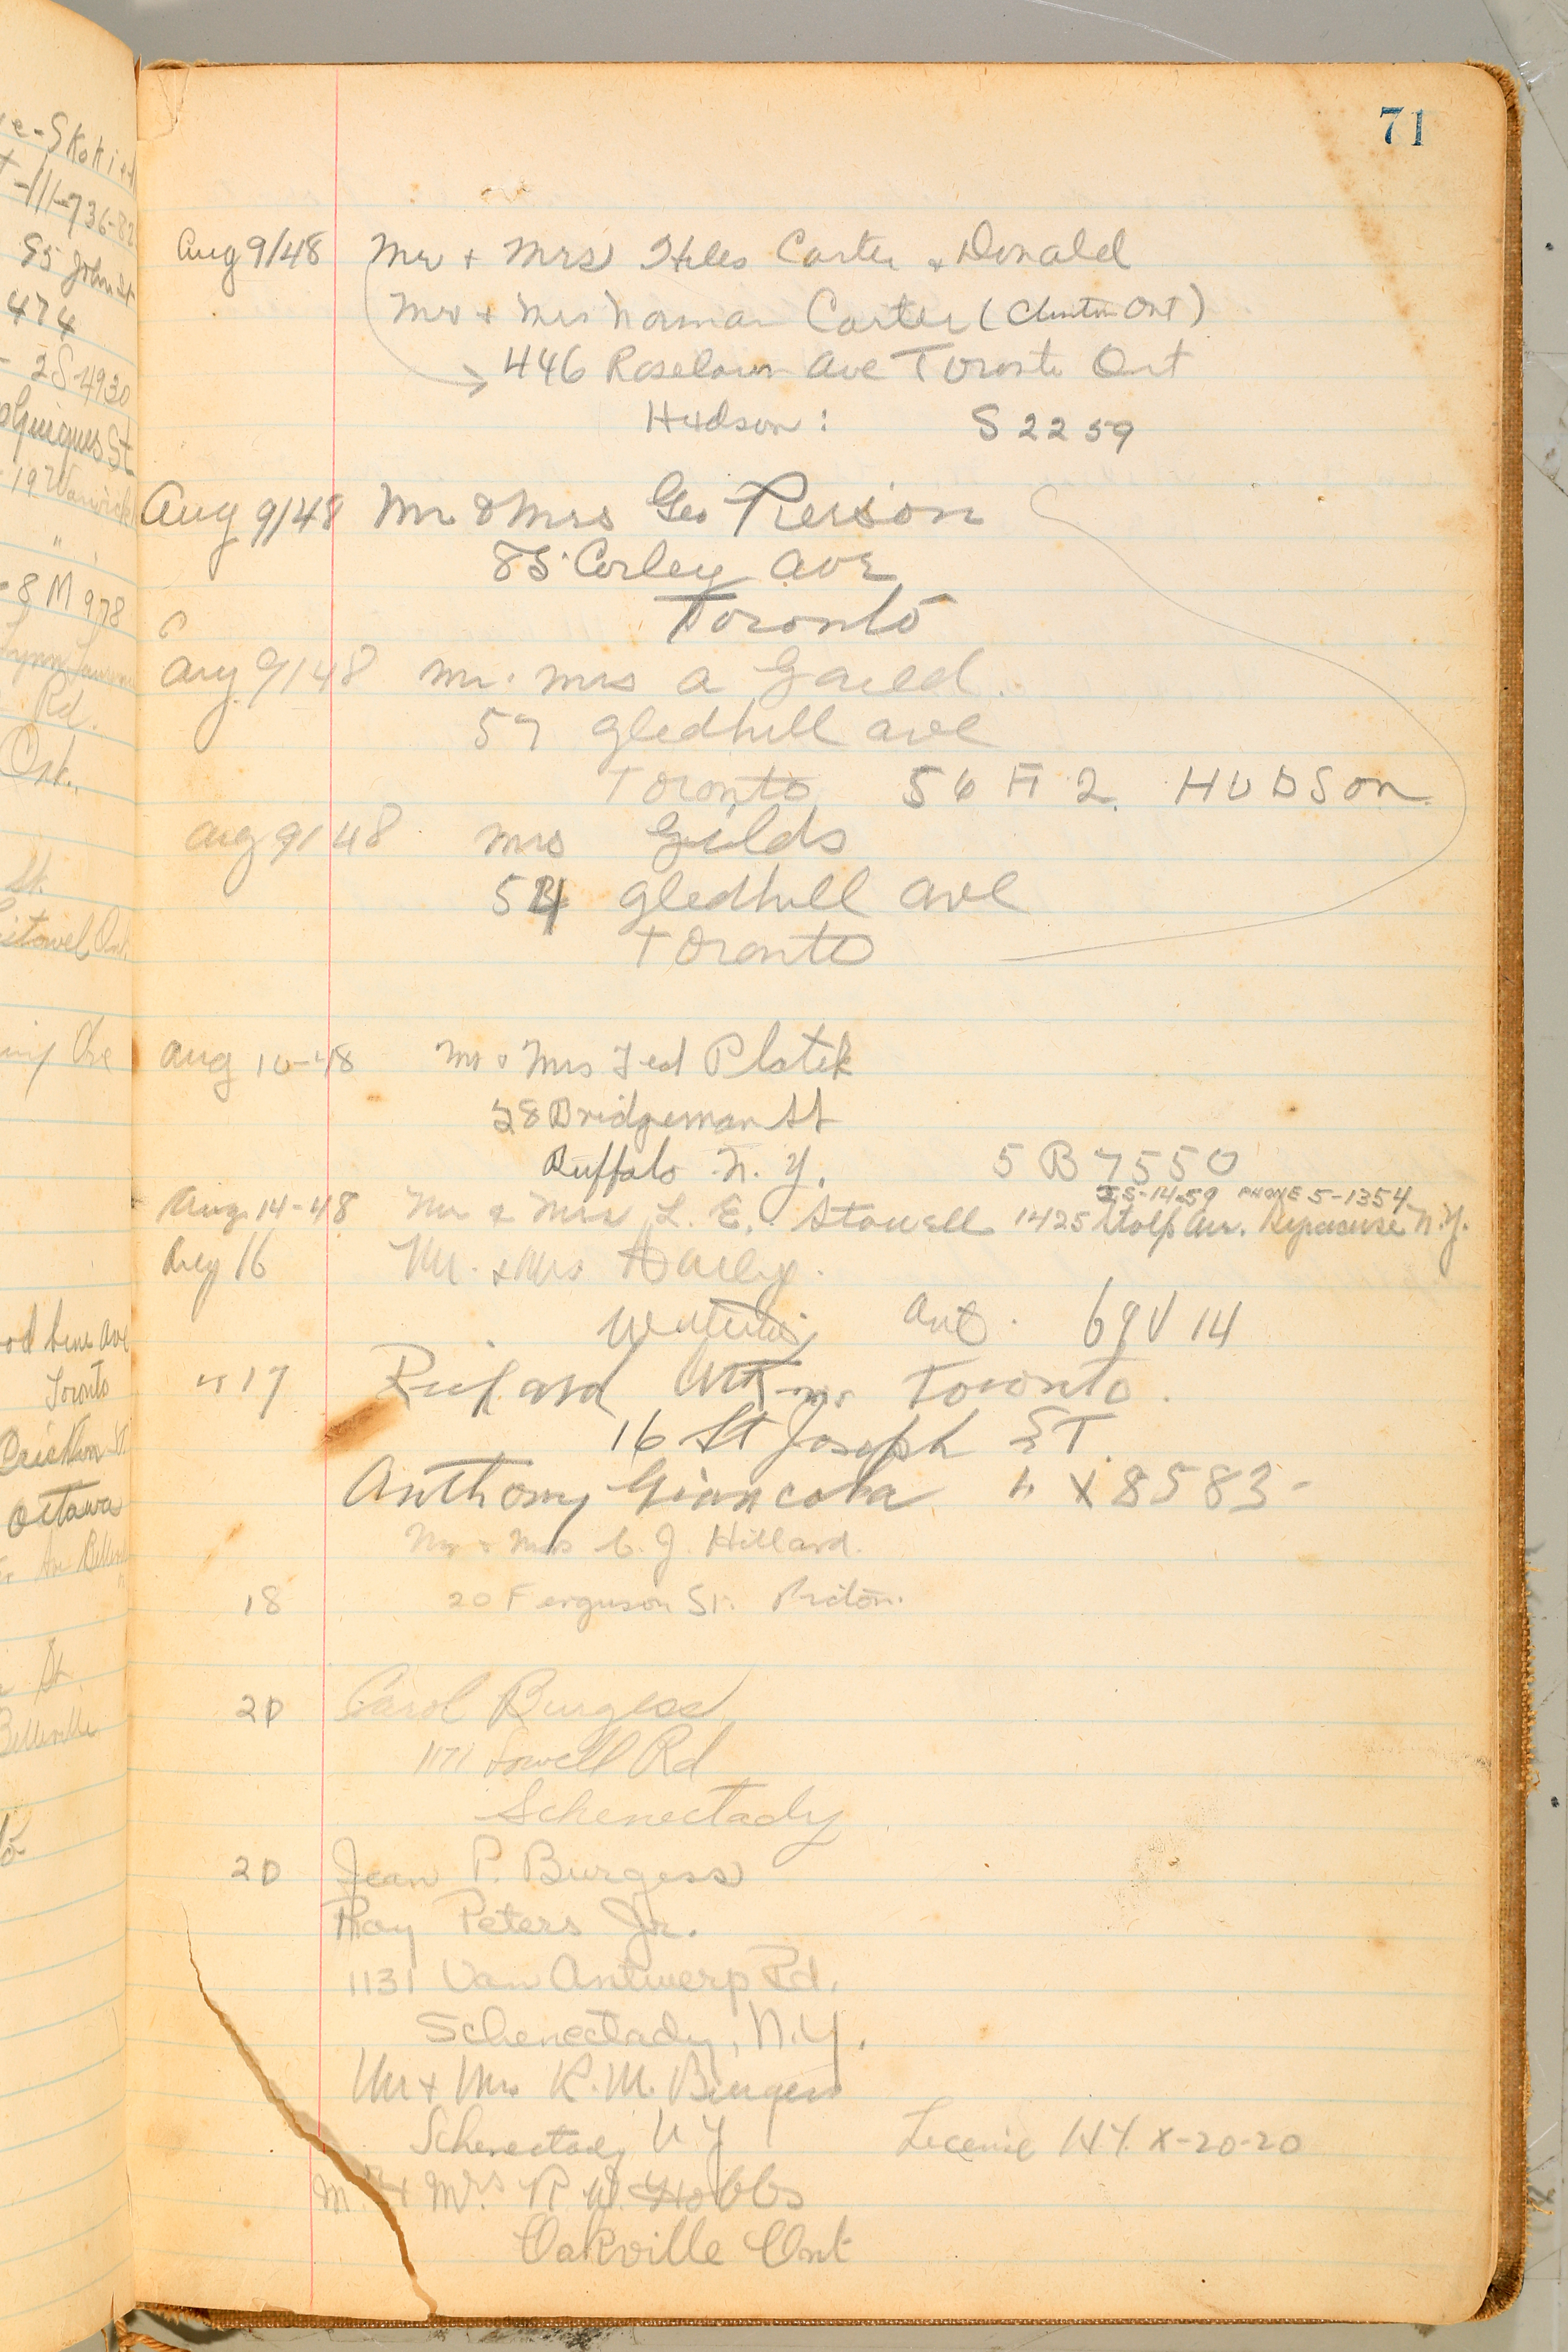 e-Skokie
-111-736-82
95 John St
474
- 2S-4930
Guigues St
19 Warwick
"
-8 M 978
Rd.
Ont.
St.
Listowel Ont.
od bine Ave
Toronto
Ottawa
Ave Belleville
St.
Belleville
71
Aug 9/48 Mr + Mrs Carter & Donald
Mr + Mrs Norman Carter (Clinton Ont)
446 Roselawn Ave Toronto Ont
Hudson: S2259
Aug 9/48 Mr & Mrs Geo Pierson
85 Corley Ave
Toronto
Aug 9/48 Mr. Mrs A Gauld.
57 Gledhill Ave
Toronto 56 H 2. HUDSON
Aug 9/48 Mrs Geilds
54 Gledhill Ave
Toronto
Aug 10-48 Mr & Mrs Ted Platek
28 Bridgeman St
Buffalo N.Y. 5 B 7550
5-14-59 PHONE 5-1354
Aug 14-48 Mr & Mrs L. E. Stowell 1425 Stolp Ave. Syracuse N.Y.
Aug 16 Mr. & Mrs Harley.
Ont. 69V14
" 17 Richard Toronto.
16 St Joseph ST.
Anthony Giancola " X8583-
Mr & Mrs C. J. Hillard.
18 20 Ferguson St. Picton.
20 Carol Burgess
1171 Lowell Rd
Schenectady
20 Jean P. Burgess
Roy Peters Jr.
1131 Van Antwerp Rd.
Schenectady, N.Y.
Mr + Mrs R. M. Burgess
Schenectady NY License NY. X-20-20
Mr. & Mrs. R. W. Hobbs
Oakville Ont